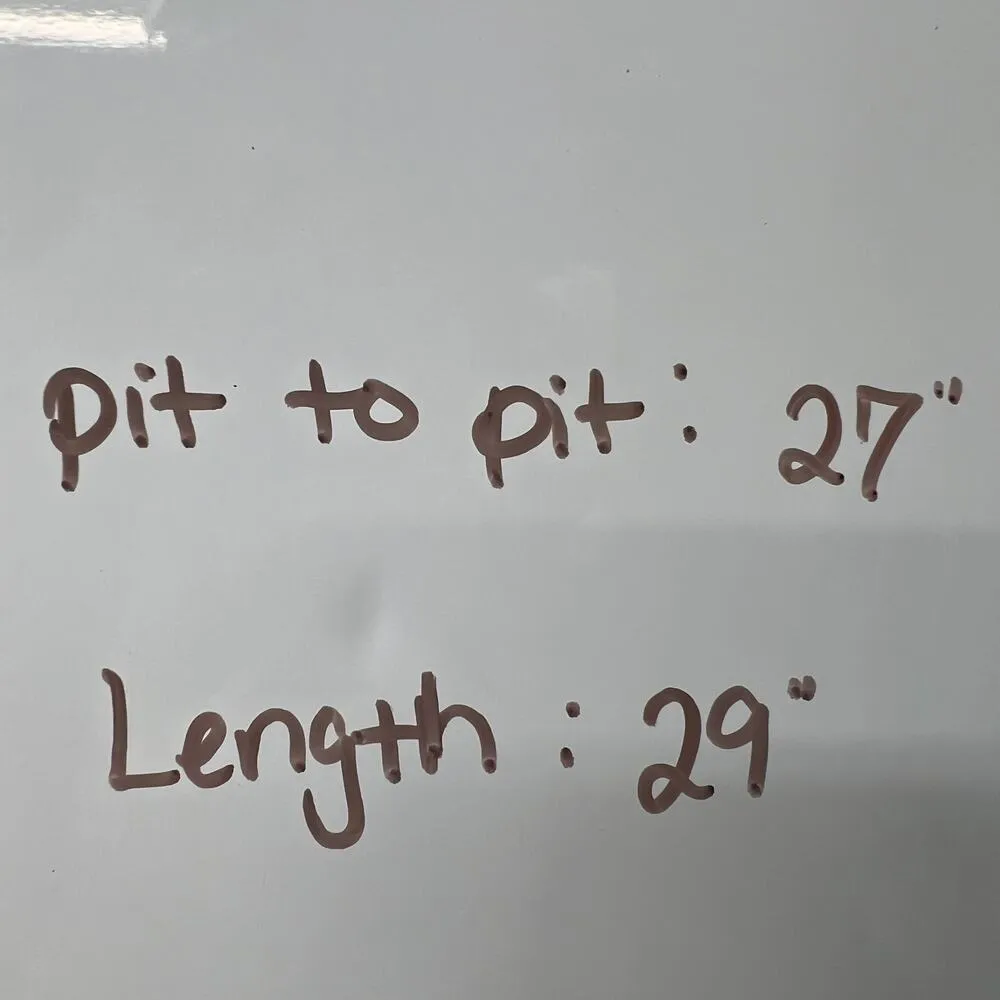 pit to pit: 27"
Length: 29"